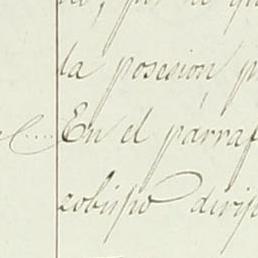 la posesion p
En el parraf
zobispo dirij